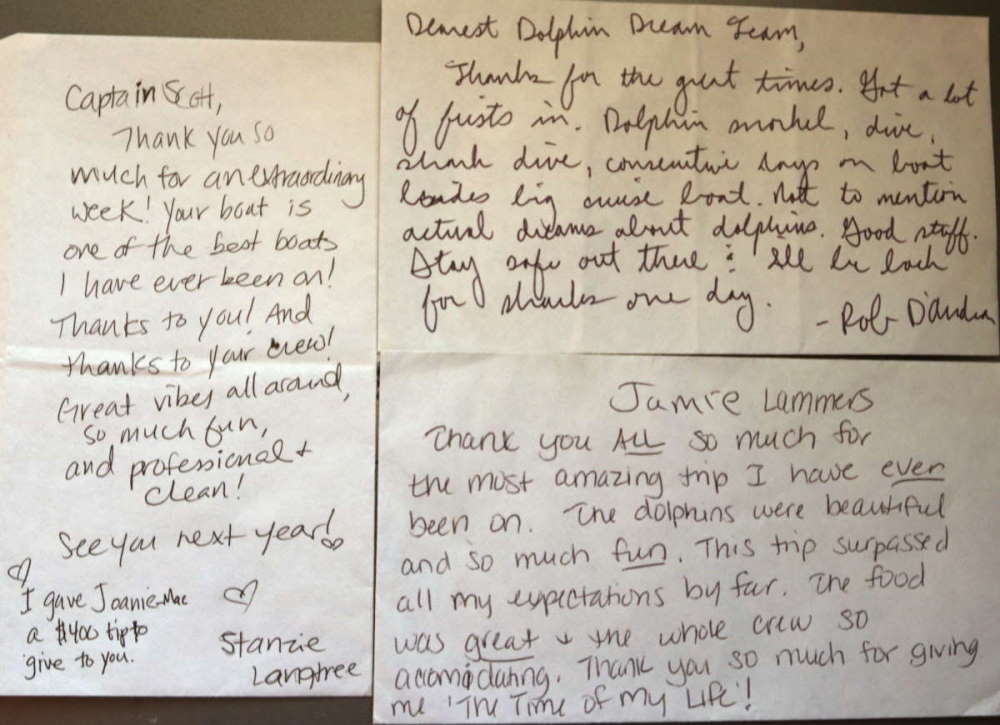 Captain Scott,
Thank you so
much for an extraordinary
week! Your boat is
one of the best boats
I have ever been on!
Thanks to you! And
thanks to your crew!
Great vibes all around,
so much fun,
and professional +
clean!
See you next year!
I gave Joanie Mac
a $400 tip to
give to you.
Stanzie
Langtree
Dearest Dolphin Dream Team,
Thanks for the great times. Got a lot
of firsts in. Dolphin snorkel, dive,
shark dive, consecutive days on boat
besides big cruise boat. Not to mention
actual dreams about dolphins. Good stuff.
Stay safe out there : I'll be back
for sharks one day.
- Rob D'Andrea
Jamie Lammers
Thank you ALL so much for
the most amazing trip I have ever
been on. The dolphins were beautiful
and so much fun. This trip surpassed
all my expectations by far. The food
was great + the whole crew so
accomodating. Thank you so much for giving
me 'The Time of my Life'!